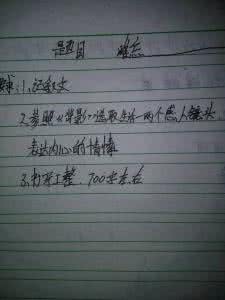 题目 难忘
要求:1、记叙文
2、参照《背影》选取生活一两个感人镜头
表达内心的情愫
3、书写工整,700字左右